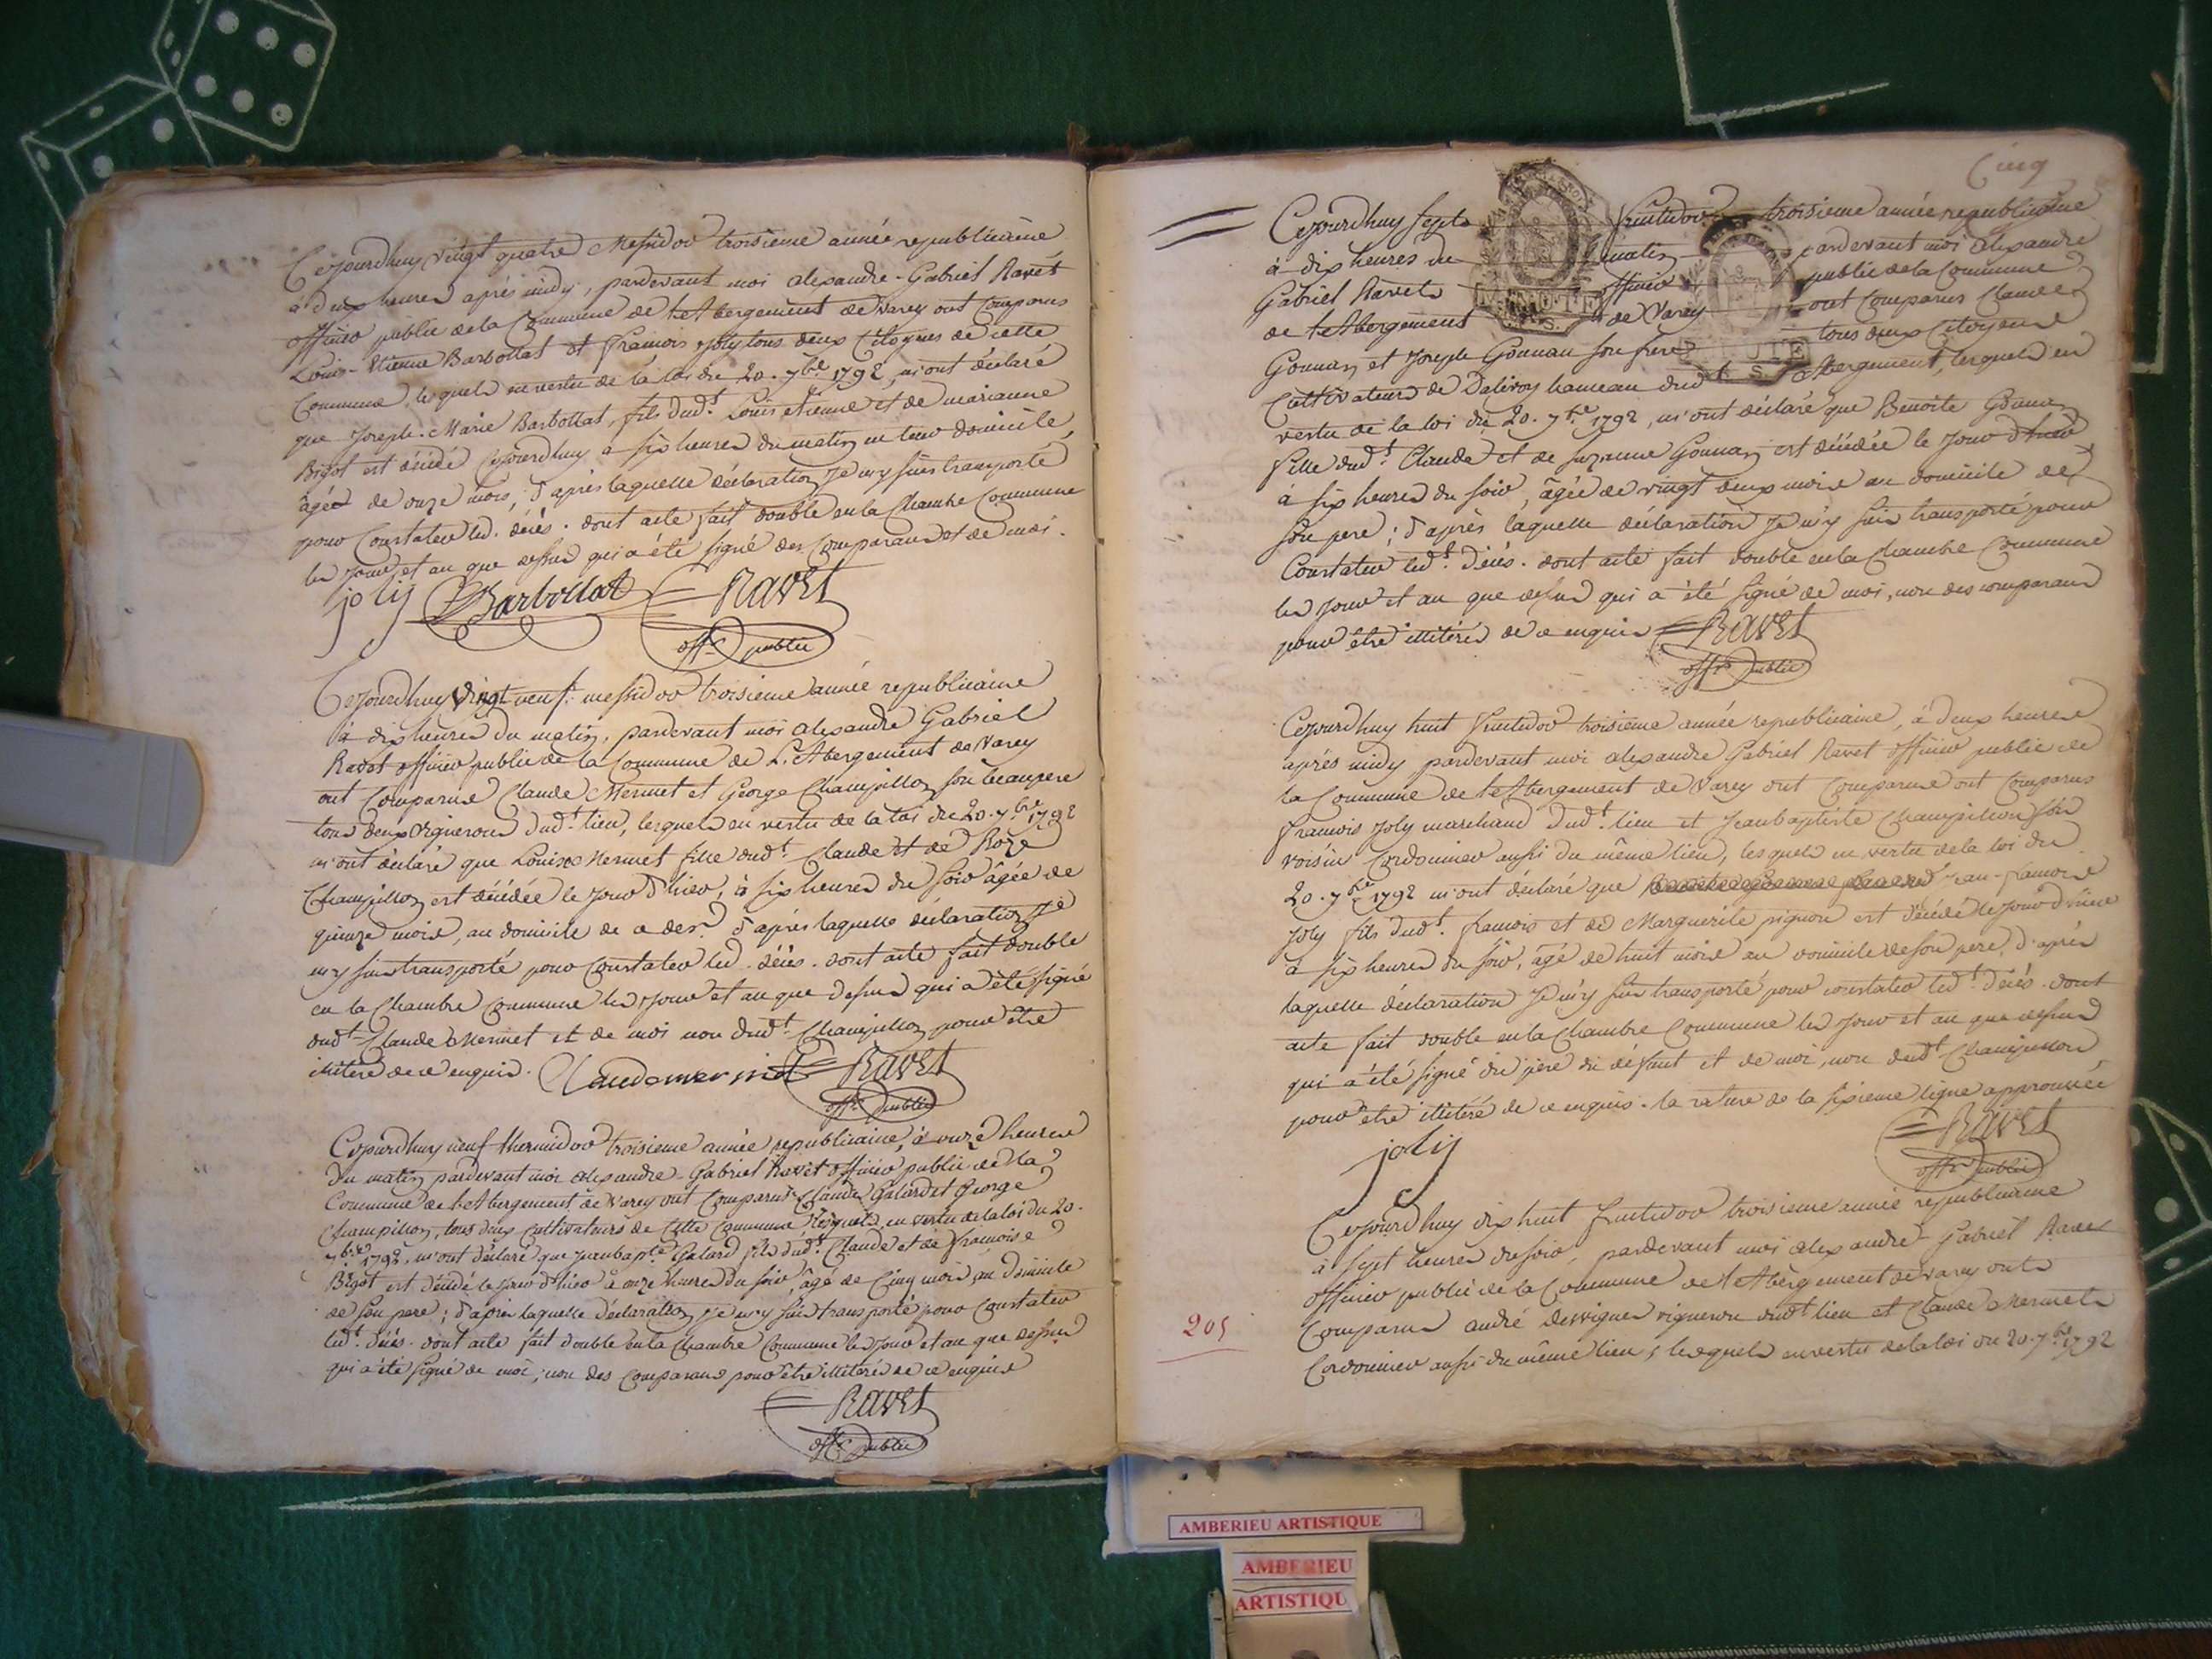 Cejourdhuy vingt quatre Messidor troisieme année republicaine
à deux heures après midy, pardevant moi alexandre-Gabriel Ravet
officier public de la Commune de L'Abergement de Varey ont Comparus
Louis-Etienne Barbollat et François Joly tous deux Citoyens de cette
Commune, lesquels en vertu de la loi du 20. 7bre 1792, m'ont déclaré
que Joseph-Marie Barbollat, fils dudt. Louis etienne et de marianne
Bigot est décédé Cejourdhuy à six heures du matin en leur domicile,
âgée de onze mois, d'après laquelle déclaration Je m'y suis transporté
pour Constater led. décès. dont acte fait double en la Chambre Commune
les jour et an que dessus qui a été signé des Comparans et de moi.
joly Barbollat Ravet
offer public
Cejourdhuy vingt neuf messidor troisieme année republicaine
à dix heures du matin, pardevant moi alexandre Gabriel
Ravet officier public de la Commune de L'Abergement de Varey
ont Comparus Claude Mermet et George Champillon son beaupere
tous deux vignerons dudt. lieu, lesquels en vertu de la loi du 20. 7bre 1792
m'ont déclaré que Louise Mermet fille dudt. Claude et de Roze
Champillon est décédée le jour d'hier, à six heures du soir âgée de
quinze mois, au domicile de ce der. d'après laquelle déclaration Je
m'y suis transporté pour Constater led. décès. dont acte fait double
en la Chambre Commune les jour et an que dessus qui a été signé
dudt. Claude Mermet et de moi non dudt. Champillon pour être
illitéré de ce enquis. Claude mermet Ravet
offer public
Cejourdhuy neuf thermidor troisieme année republicaine, à onze heures
du matin pardevant moi alexandre-Gabriel Ravet officier public de la
Commune de L'Abergement de Varey ont Comparus Claude Galard et George
Champillon, tous deux cultivateurs de cette Commune lesquels en vertu de la loi du 20.
7bre 1792, m'ont déclaré que jeanbapte. Galard fils dudt. Claude et de françoise
Bigot est décédé le jour d'hier à onze heures du soir, âgé de Cinq mois, au domicile
de son pere; d'après laquelle déclaration, je m'y suis transporté pour Constater
ledt. décès. dont acte fait double en la Chambre Commune les jour et an que dessus
qui a été signé de moi, non des comparans pour être illitérés de ce enquis
Ravet
offer public
Cinq
Cejourdhuy sept fructidor troisieme année republicaine
à dix heures du matin pardevant moi alexandre
Gabriel Ravet officier public de la Commune
de L'Abergement de Varey ont Comparus Claude
Gonnan et Joseph Gonnan son frere tous deux Citoyens
Cultivateurs de Dalivoy hameau dudt. Abergement, lesquels en
vertu de la loi du 20. 7bre 1792, m'ont déclaré que Benoite Gonnan
fille dudt. Claude et de suzanne Gonnan est décédée le jour d'hier
à six heures du soir, âgée de vingt deux mois au domicile de
son pere; d'après laquelle déclaration Je m'y suis transporté pour
Constater ledt. décès. dont acte fait double en la Chambre Commune
les jour et an que dessus qui a été signé de moi, non des comparans
pour être illitérés de ce enquis Ravet
offer public
Cejourdhuy huit fructidor troisieme année republicaine, à deux heures
après midy pardevant moi alexandre Gabriel Ravet officier public de
la Commune de L'Abergement de Varey ont Comparus ont Comparus
francois Joly marchand dudt. lieu et Jeanbaptiste Champillon son
voisin Cordonnier aussi du même lieu, lesquels en vertu de la loi du
20. 7bre 1792 m'ont déclaré que jean-francois
Joly fils dudt. francois et de Marguerite pignon est décédé le jour d'hier
à six heures du soir, âgé de huit mois au domicile de son pere, d'après
laquelle déclaration Je m'y suis transporté pour constater ledt. décès. dont
acte fait double en la Chambre Commune les jour et an que dessus
qui a été signé du pere du défunt et de moi, non dudt. Champillon
pour être illitéré de ce enquis. la rature de la sixieme ligne approuvée
joly Ravet
offer public
Cejourdhuy dix huit fructidor troisieme année republicaine
à sept heures du soir, pardevant moi alexandre-Gabriel Ravet
officier public de la Commune de L'Abergement de Varey ont
Comparus andré desvignes vigneron dudt lieu et Claude Mermet
Cordonnier aussi du même lieu, lesquels en vertu de la loi du 20. 7bre 1792
205
AMBERIEU ARTISTIQUE
AMBERIEU
ARTISTIQU